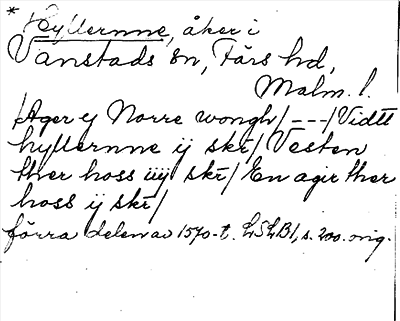 * Hyllernne, åker i
Vanstads sn, Färs hd,
Malm. l.
/Ager ej Norre wongh/---/Vidtt
hyllernne ij skr/Vesten
ther hoss iiij skr/En agir ther
hoss ij skr/
förra delen av 1570-t. LSLB1, s. 200. orig.